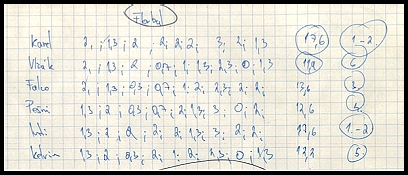 Florbal
Karel 2, ; 1,3 ; 2 ; 2 ; 2 ; 2 ; 3 ; 2 ; 1,3 17,6 1.-2.
Vlzák 2, ; 1,3 ; 2 ; 0,7 ; 1 ; 1,3 ; 2,3 ; 0 ; 1,3 6.
Falco 2, ; 1,3 ; 0,3 ; 0,7 ; 1 ; 2 ; 2,3 ; 2 ; 2 13,6 3.
1,3 ; 2 ; 0,3 ; 0,7 ; 2 ; 1,3 ; 3 ; 0 ; 2 12,6 4.
1,3 ; 2 ; 2 ; 2 ; 1,3 ; 3 ; 2 ; 2 17,6 1.-2.
Kelvin 1,3 ; 2 ; 0,3 ; 2 ; 1 ; 2 ; 2,3 ; 0 ; 1,3 12,2 5.